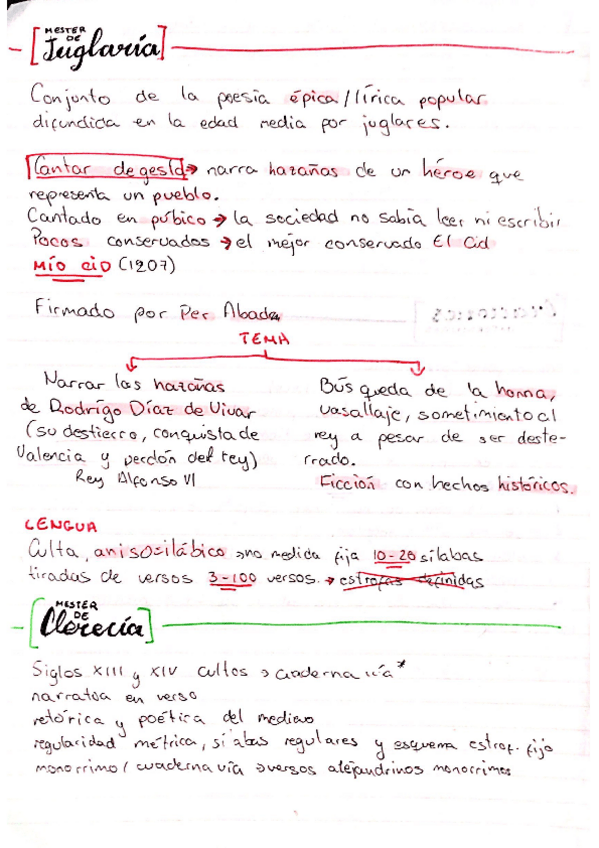 MESTER
DE
Juglaría
Conjunto de la poesía épica/lírica popular
difundida en la edad media por juglares.
Cantar de gesta → narra hazañas de un héroe que
representa un pueblo.
Cantado en púbico → la sociedad no sabía leer ni escribir
Pocos conservados → el mejor conservado El Cid
MÍO CID (1207)
Firmado por Per Abad
TEMA
Narrar las hazañas
de Rodrigo Díaz de Vivar
(su destierro, conquista de
Valencia y perdón del rey)
Rey Alfonso VI
Búsqueda de la honra,
vasallaje, sometimiento al
rey a pesar de ser deste-
rrado.
Ficción con hechos históricos.
LENGUA
Culta, anisosilábico → no medida fija 10-20 sílabas
tiradas de versos 3-100 versos. → estrofas definidas
MESTER
DE
Clerecía
Siglos XIII y XIV cultos → cuaderna vía*
narrativa en verso
retórica y poética del medievo
regularidad métrica, sílabas regulares y esquema estrof. fijo
monorrimo / cuaderna vía → versos alejandrinos monorrimos